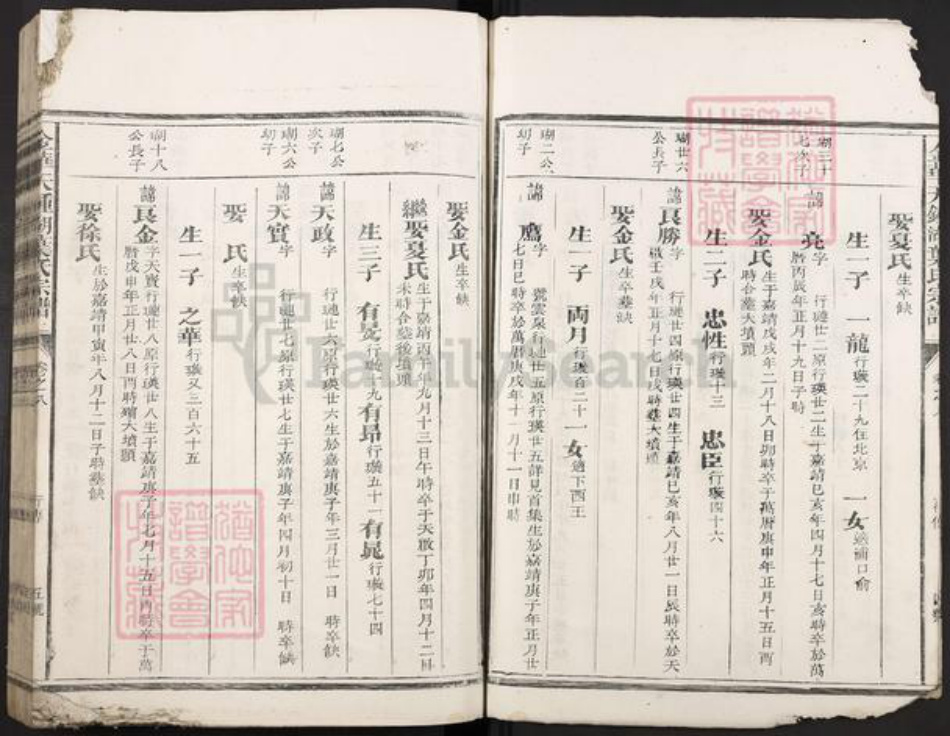 娶夏氏生卒缺
生一子 一龍行璇二十九住北京 一女適浦口俞
瑚三十七次子
諱亮字 行璉廿二原行瑛廿二生于嘉靖己亥年四月十七日亥時卒於萬曆丙辰年正月十九日子時
娶金氏生于嘉靖戊戌年二月十八日卯時卒于萬曆庚申年正月十五日酉時合塟大墳頭
生二子 忠性行璇十三 忠臣行璇四十六
瑚廿六公長子
諱良勝字 行璉廿四原行瑛廿四生于嘉靖己亥年八月廿一日辰時卒於天啟壬戌年正月十七日戌時塟大墳頭
娶金氏生卒塟缺
生一子 両月行璇百二十一 一女適下西王
瑚二公幼子
諱鷹字 號雲泉行璉廿五原行瑛廿五詳見首集生於嘉靖庚子年正月廿七日巳時卒於萬曆庚戌年十一月十一日申時
娶金氏生卒缺
繼娶夏氏生于嘉靖丙午年九月十三日午時卒于天啟丁卯年四月十二日未時合塟後墳頭
生三子 有旻行璇一九 有昂行璇五十二 有晁行璇七十四
瑚七公次子
諱天政字 行璉廿六原行瑛廿六生於嘉靖庚子年三月廿一日 時卒缺
瑚六公幼子
諱天實字 行璉廿七原行瑛廿七生于嘉靖庚子年四月初十日 時卒缺
娶 氏生卒缺
生一子 之華行璇又三百六十五
瑚十八公長子
諱良金字天貴行璉廿八原行瑛廿八生于嘉靖庚子年七月十五日酉時卒于萬曆戊申年正月廿八日酉時殯大墳頭
娶徐氏生於嘉靖甲寅年八月十二日子時塟缺
卷之八
行傳
五號
FamilySearch